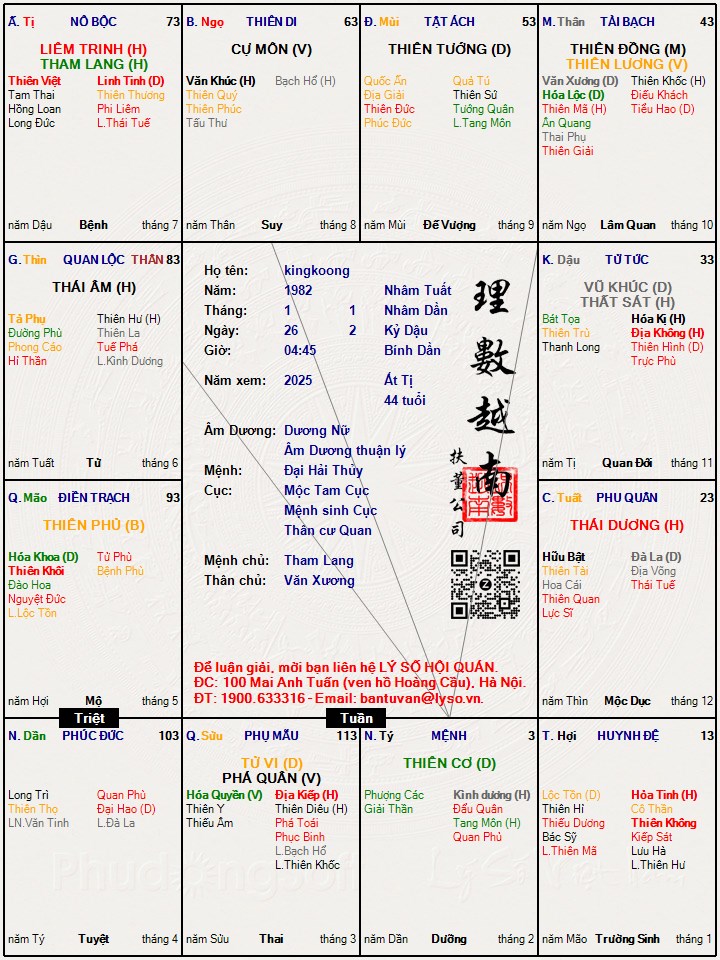 Ấ. Tị NÔ BỘC 73
LIÊM TRINH (H)
THAM LANG (H)
Thiên Việt Linh Tinh (D)
Tam Thai Thiên Thương
Hồng Loan Phi Liêm
Long Đức L.Thái Tuế
năm Dậu Bệnh tháng 7
B. Ngọ THIÊN DI 63
CỰ MÔN (V)
Văn Khúc (H) Bạch Hổ (H)
Thiên Quý
Thiên Phúc
Tấu Thư
năm Thân Suy tháng 8
Đ. Mùi TẬT ÁCH 53
THIÊN TƯỚNG (D)
Quốc Ấn Quả Tú
Địa Giải Thiên Sứ
Thiên Đức Tướng Quân
Phúc Đức L.Tang Môn
năm Mùi Đế Vượng tháng 9
M. Thân TÀI BẠCH 43
THIÊN ĐỒNG (M)
THIÊN LƯƠNG (V)
Văn Xương (D) Thiên Khốc (H)
Hóa Lộc (D) Điếu Khách
Thiên Mã (H) Tiểu Hao (D)
Ân Quang
Thai Phụ
Thiên Giải
năm Ngọ Lâm Quan tháng 10
G. Thìn QUAN LỘC THÂN 83
THÁI ÂM (H)
Tả Phụ Thiên Hư (H)
Đường Phù Thiên La
Phong Cáo Tuế Phá
Hỉ Thần L.Kình Dương
năm Tuất Tử tháng 6
Họ tên: kingkoong
Năm: 1982 Nhâm Tuất
Tháng: 1 1 Nhâm Dần
Ngày: 26 2 Kỷ Dậu
Giờ: 04:45 Bính Dần
Năm xem: 2025 Ất Tị
44 tuổi
Âm Dương: Dương Nữ
Âm Dương thuận lý
Mệnh: Đại Hải Thủy
Cục: Mộc Tam Cục
Mệnh sinh Cục
Thân cư Quan
Mệnh chủ: Tham Lang
Thân chủ: Văn Xương
理數越南
扶董公司
Để luận giải, mời bạn liên hệ LÝ SỐ HỘI QUÁN.
ĐC: 100 Mai Anh Tuấn (ven hồ Hoàng Cầu), Hà Nội.
ĐT: 1900.633316 - Email: bantuvan@lyso.vn.
K. Dậu TỬ TỨC 33
VŨ KHÚC (D)
THẤT SÁT (H)
Bát Tọa Hóa Kị (H)
Thiên Trù Địa Không (H)
Thanh Long Thiên Hình (D)
Trực Phù
năm Tị Quan Đới tháng 11
Q. Mão ĐIỀN TRẠCH 93
THIÊN PHỦ (B)
Hóa Khoa (D) Tử Phù
Thiên Khôi Bệnh Phù
Đào Hoa
Nguyệt Đức
L.Lộc Tồn
năm Hợi Mộ tháng 5
C. Tuất PHU QUÂN 23
THÁI DƯƠNG (H)
Hữu Bật Đà La (D)
Thiên Tài Địa Võng
Hoa Cái Thái Tuế
Thiên Quan
Lực Sĩ
năm Thìn Mộc Dục tháng 12
Triệt
Tuần
N. Dần PHÚC ĐỨC 103
Long Trì Quan Phù
Thiên Thọ Đại Hao (D)
LN.Văn Tinh L.Đà La
năm Tý Tuyệt tháng 4
Q. Sửu PHỤ MẪU 113
TỬ VI (D)
PHÁ QUÂN (V)
Hóa Quyền (V) Địa Kiếp (H)
Thiên Y Thiên Diêu (H)
Thiếu Âm Phá Toái
Phục Binh
L.Bạch Hổ
L.Thiên Khốc
năm Sửu Thai tháng 3
N. Tý MỆNH 3
THIÊN CƠ (D)
Phượng Các Kình dương (H)
Giải Thần Đẩu Quân
Tang Môn (H)
Quan Phủ
năm Dần Dưỡng tháng 2
T. Hợi HUYNH ĐỆ 13
Lộc Tồn (D) Hỏa Tinh (H)
Thiên Hỉ Cô Thần
Thiếu Dương Thiên Không
Bác Sỹ Kiếp Sát
L.Thiên Mã Lưu Hà
L.Thiên Hư
năm Mão Trường Sinh tháng 1